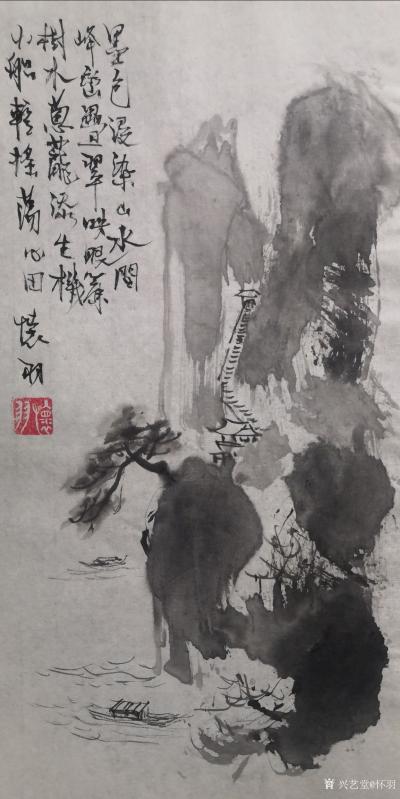 墨色浸染山水間
峰巒疊翠映眼簾
樹木蔥蘢添生機
小船輕搖蕩心田 懷羽
懷羽
兴艺堂@怀羽